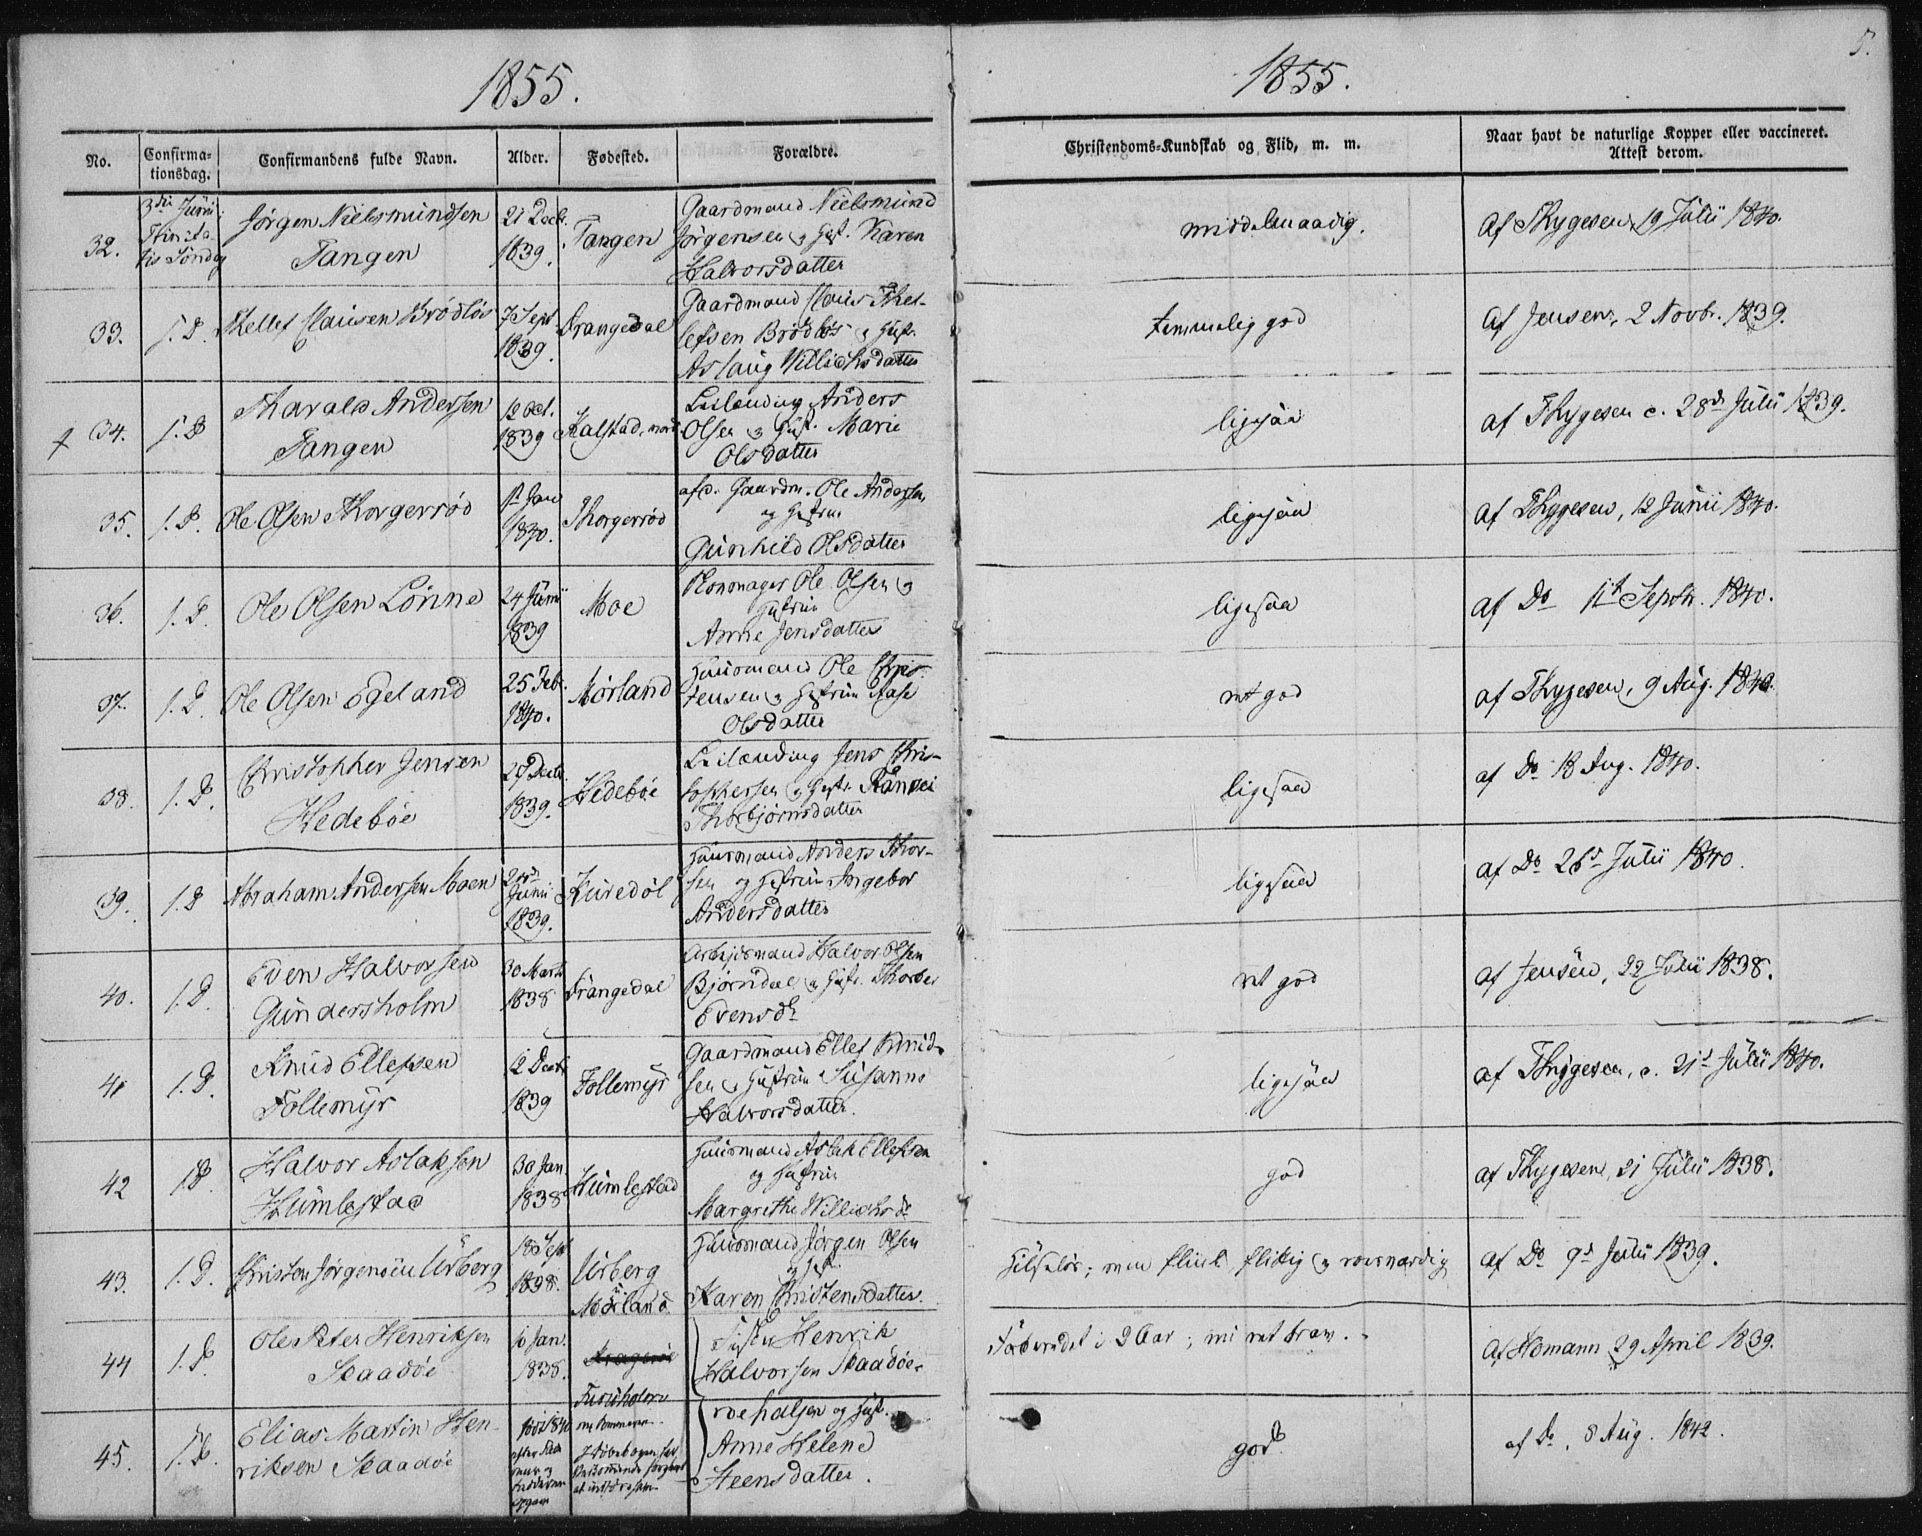 1855.
1855.
5.
No.
Confirma-
tionsdag.
Confirmandens fulde Navn.
Alder.
Fødested.
Forældre.
Christendoms-Kundskab og Flid, m. m.
Naar havt de naturlige Kopper eller vaccineret.
Attest derom.
32.
3die Juni
Trinita-
tis Søndag
Jørgen Nielsmundsen
Tangen
21 Decbr.
1839.
Tangen
Gaardmand Nielsmund
Jørgensen og Hust. Karen
Halvorsdatter
middelmaadig.
af Thygesen 19 Julii 1840.
33.
I. D.
Thellef Clausen Brødløs
7 Sept
1839.
Drangedal
Gaardmand Claus Thel-
lefsen Brødløs og Hustr.
Aslaug Villichsdatter
temmelig god
af Jensen, 2 Novbr. 1839.
34.
I. D
Tharald Andersen
Tangen
12 Oct.
1839
Kalstad, nord
Leilænding Anders
Olsen og Hust. Marie
Olsdatter
ligesaa
af Thygesen d. 28de Julii 1839.
35.
I. D.
Ole Olsen Thorgersrød
1st Jan
1840.
Thorgersrød
afd. Gaardm. Ole Andersen
og Hustrue
Gunhild Olsdatter
ligesaa
af Thygesen, 12 Junii 1840.
36.
I. D.
Ole Olsen Lønne
24 Junii
1839
Moe
Ole Olsen og
Hustrue
Anne Jensdatter
ligesaa
af Do 11t Septbr. 1840.
37.
I. D.
Ole Olsen Egeland
25 Feb.
1840.
Mørland
Huusmand Ole Chris-
tensen og Hustrue Aase
Olsdatter
ret god
af Thygesen, 9 Aug. 1840.
38.
I. D.
Christopher Jensen
Hedebøe
27 Decb.
1839.
Hedebøe
Leilænding Jens Chris-
tophersen og Hustr. Ranvei
Thorbjørnsdatter
ligesaa
af Do 18 Aug. 1840.
39.
I. D
Abraham Andersen Moen
Junii
1839.
Kuredøl
Huusmand Anders Thor-
sen og Hustrue Ingebor
Andersdatter
ligesaa
af Do 26d Julii 1840.
40.
I. D
Even Halvorsen
Gundersholm
30 Marts
1838
Drangedal
Arbejdsmand Halvor Olsen
Bjørndal og Hustr. Thorber
Evensdr
ret god
af Jensen, 22 Julii 1838.
41
I. D.
Knud Ellefsen
Follemyr
12 Decb
1839
Follemyr
Gaardmand Ellef Knud-
sen og Hustrue Susanne
Halvorsdatter.
ligesaa
af Thygesen, d. 21d Julii 1840.
42
I D.
Halvor Aslaksen
Humlestad
30 Jan
1838
Humlestad
Huusmand Aslak Ellefsen
og Hustrue
Margrethe Villichsdr
god
af Thygesen, 21 Julii 1838.
43.
I. D.
Christen Jørgensen Urberg
18 Sept
1838.
Urberg
Mørland
Huusmand Jørgen Olsen
og Hust.
Karen Christensdatter.
; men flink, flittig og
af Do 9d Julii 1839.
44
I. D
Ole Peter Henriksen
Skaadøe
10 Jan.
1838.
Kragerøe
Henrik
Halvorsen Skaadøe-
Forberedet i 2 Aar; nu ret brav.
af Homann 29 April 1839.
45.
I. D.
Elias Martin Hen-
riksen Skaadøe
roehalsen og Hust.
Anne Helene
Steensdatter.
god
af Do, 8 Aug. 1842.